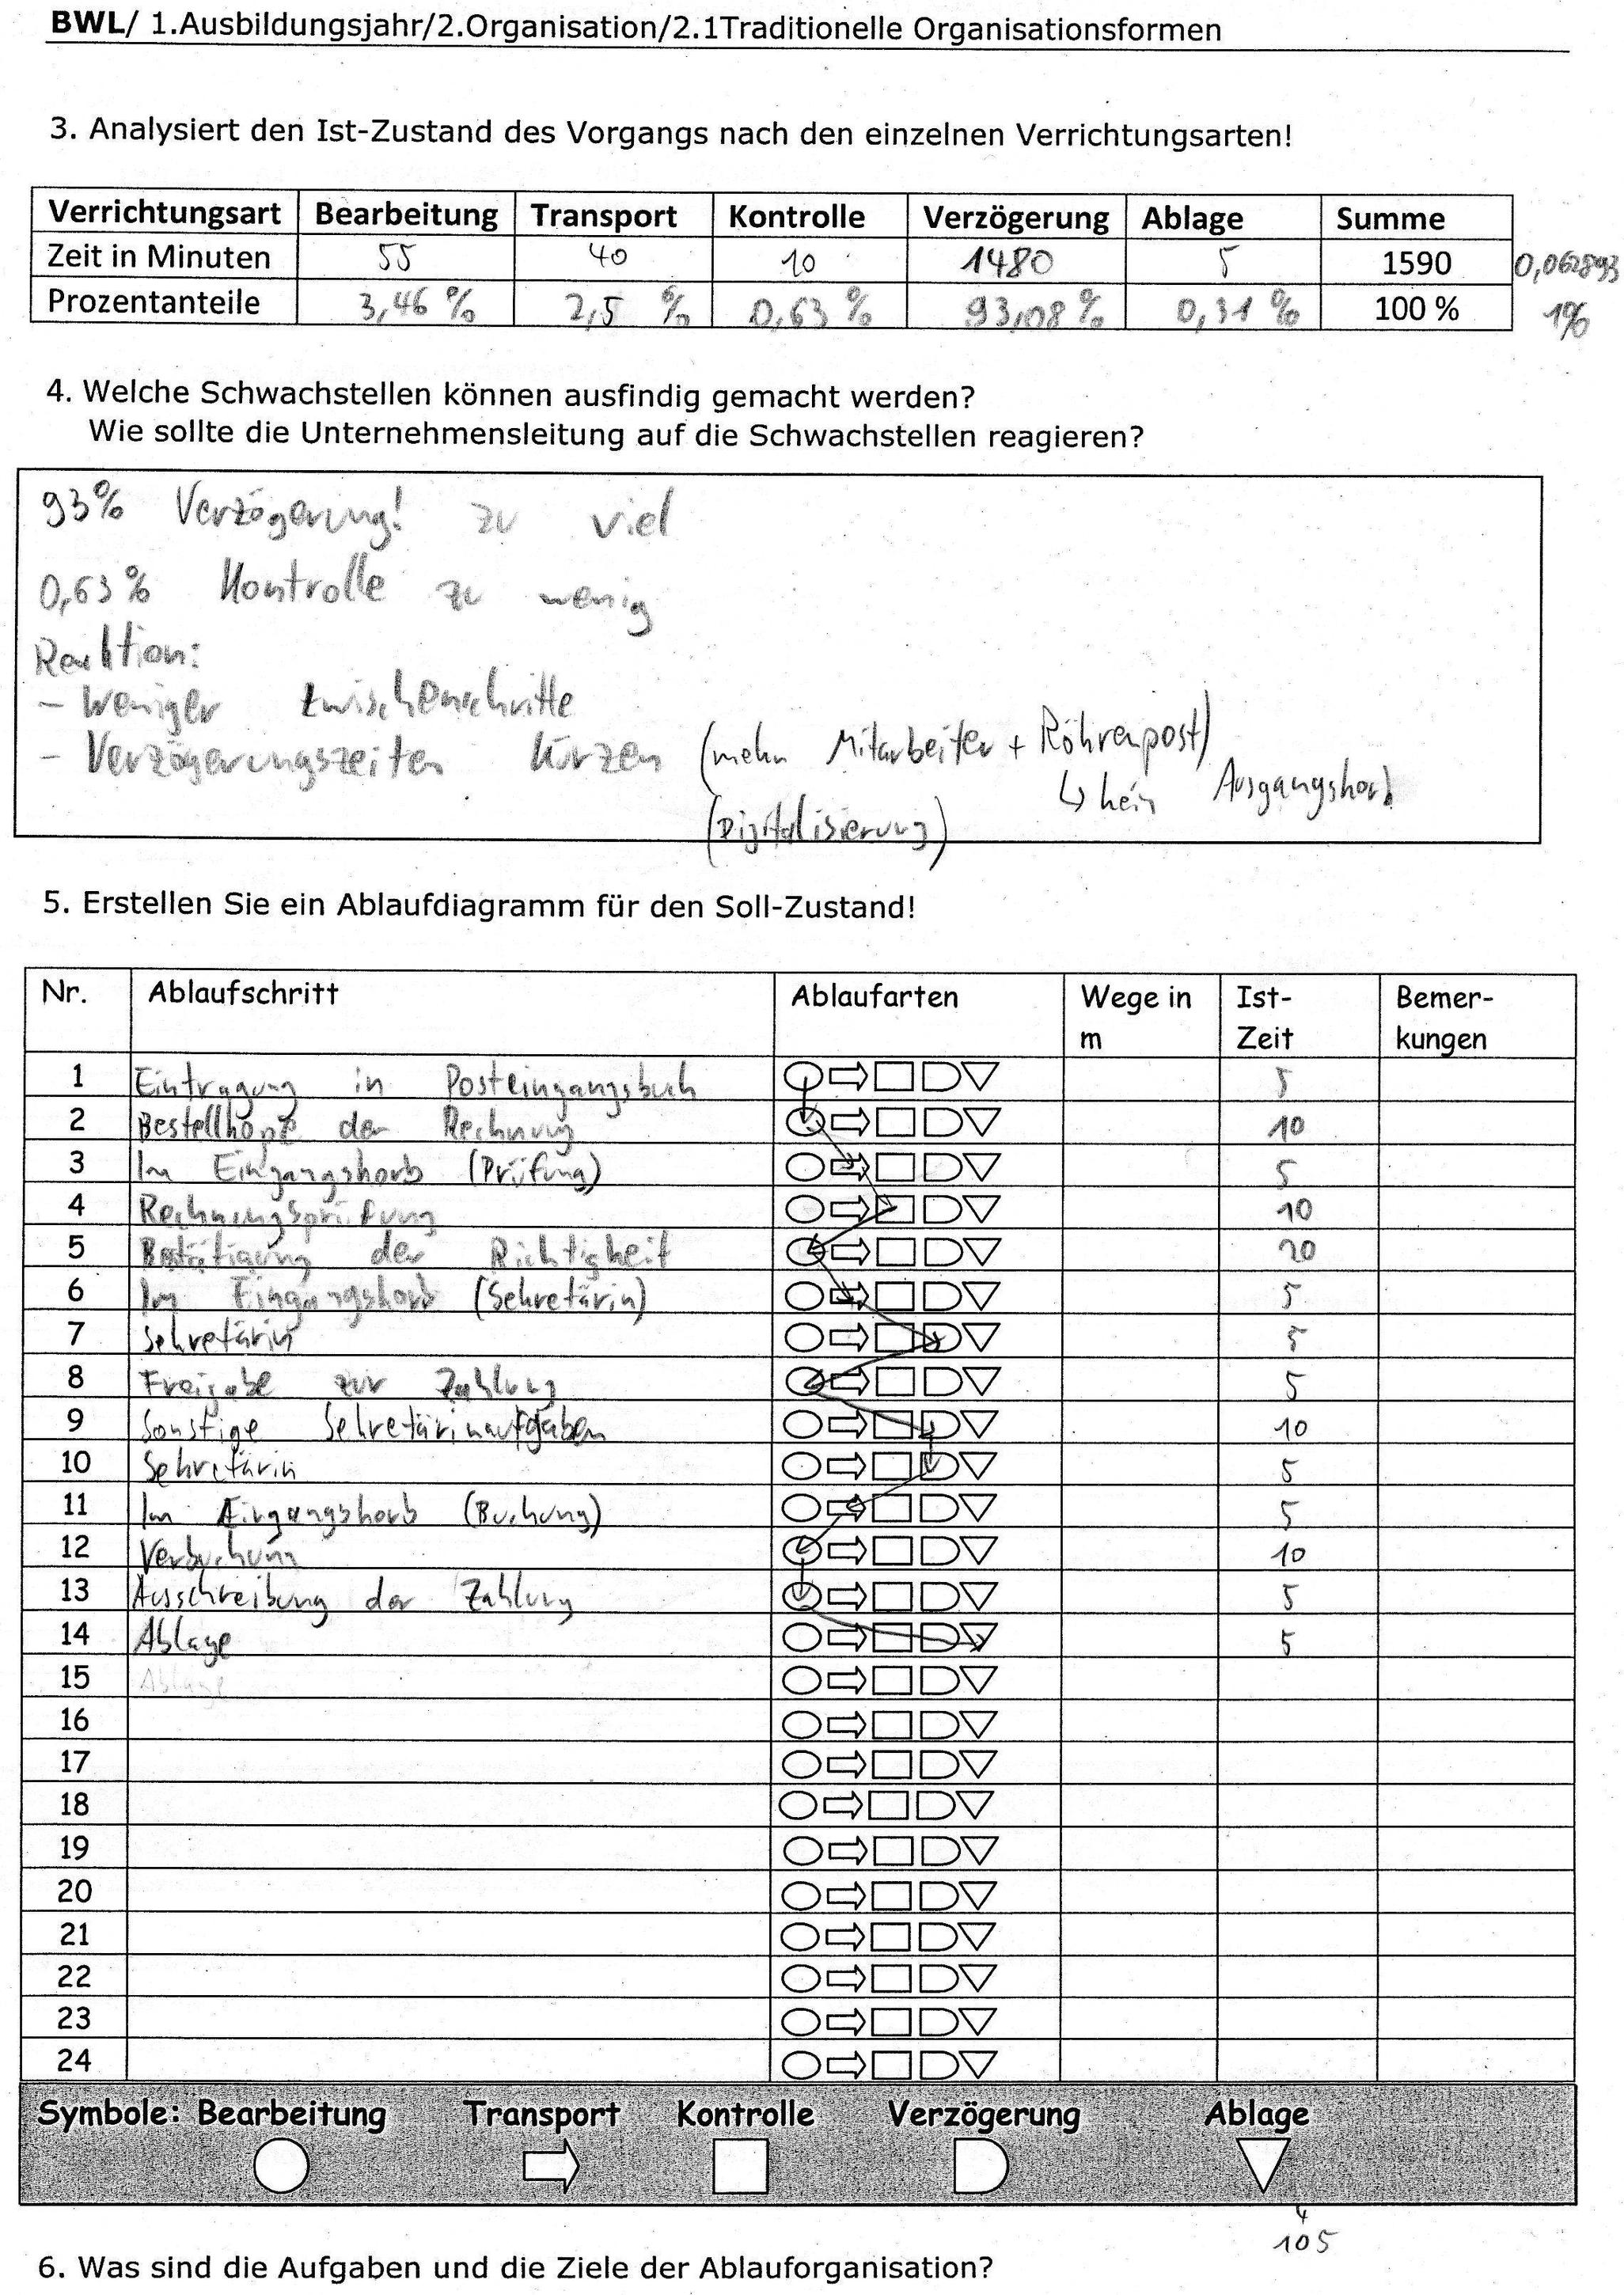 BWL/ 1.Ausbildungsjahr/2.Organisation/2.1Traditionelle Organisationsformen
3. Analysiert den Ist-Zustand des Vorgangs nach den einzelnen Verrichtungsarten!
Verrichtungsart Bearbeitung Transport Kontrolle Verzögerung Ablage Summe
Zeit in Minuten 55 40 10 1480 5 1590 0,062893
Prozentanteile 3,46 % 2,5 % 0,63 % 93,08 % 0,31 % 100 % 1%
4. Welche Schwachstellen können ausfindig gemacht werden?
Wie sollte die Unternehmensleitung auf die Schwachstellen reagieren?
93% Verzögerung! zu viel
0,63% Kontrolle zu wenig
Reaktion:
- Weniger Zwischenschritte
- Verzögerungszeiten kürzen (mehr Mitarbeiter + Röhrenpost)
↳ kein Ausgangskorb
(Digitalisierung)
5. Erstellen Sie ein Ablaufdiagramm für den Soll-Zustand!
Nr. Ablaufschritt Ablaufarten Wege in Ist- Bemer-
m Zeit kungen
1 Eintragung in Posteingangsbuch 5
2 Bestellkopie der Rechnung 10
3 Im Eingangskorb (Prüfung) 5
4 Rechnungsprüfung 10
5 Bestätigung der Richtigkeit 20
6 Im Eingangskorb (Sekretärin) 5
7 Sekretärin 5
8 Freigabe zur Zahlung 5
9 Sonstige Sekretärinaufgaben 10
10 Sekretärin 5
11 Im Eingangskorb (Buchung) 5
12 Verbuchung 10
13 Ausschreibung der Zahlung 5
14 Ablage 5
15 Ablage
16
17
18
19
20
21
22
23
24
Symbole: Bearbeitung Transport Kontrolle Verzögerung Ablage
105
6. Was sind die Aufgaben und die Ziele der Ablauforganisation?